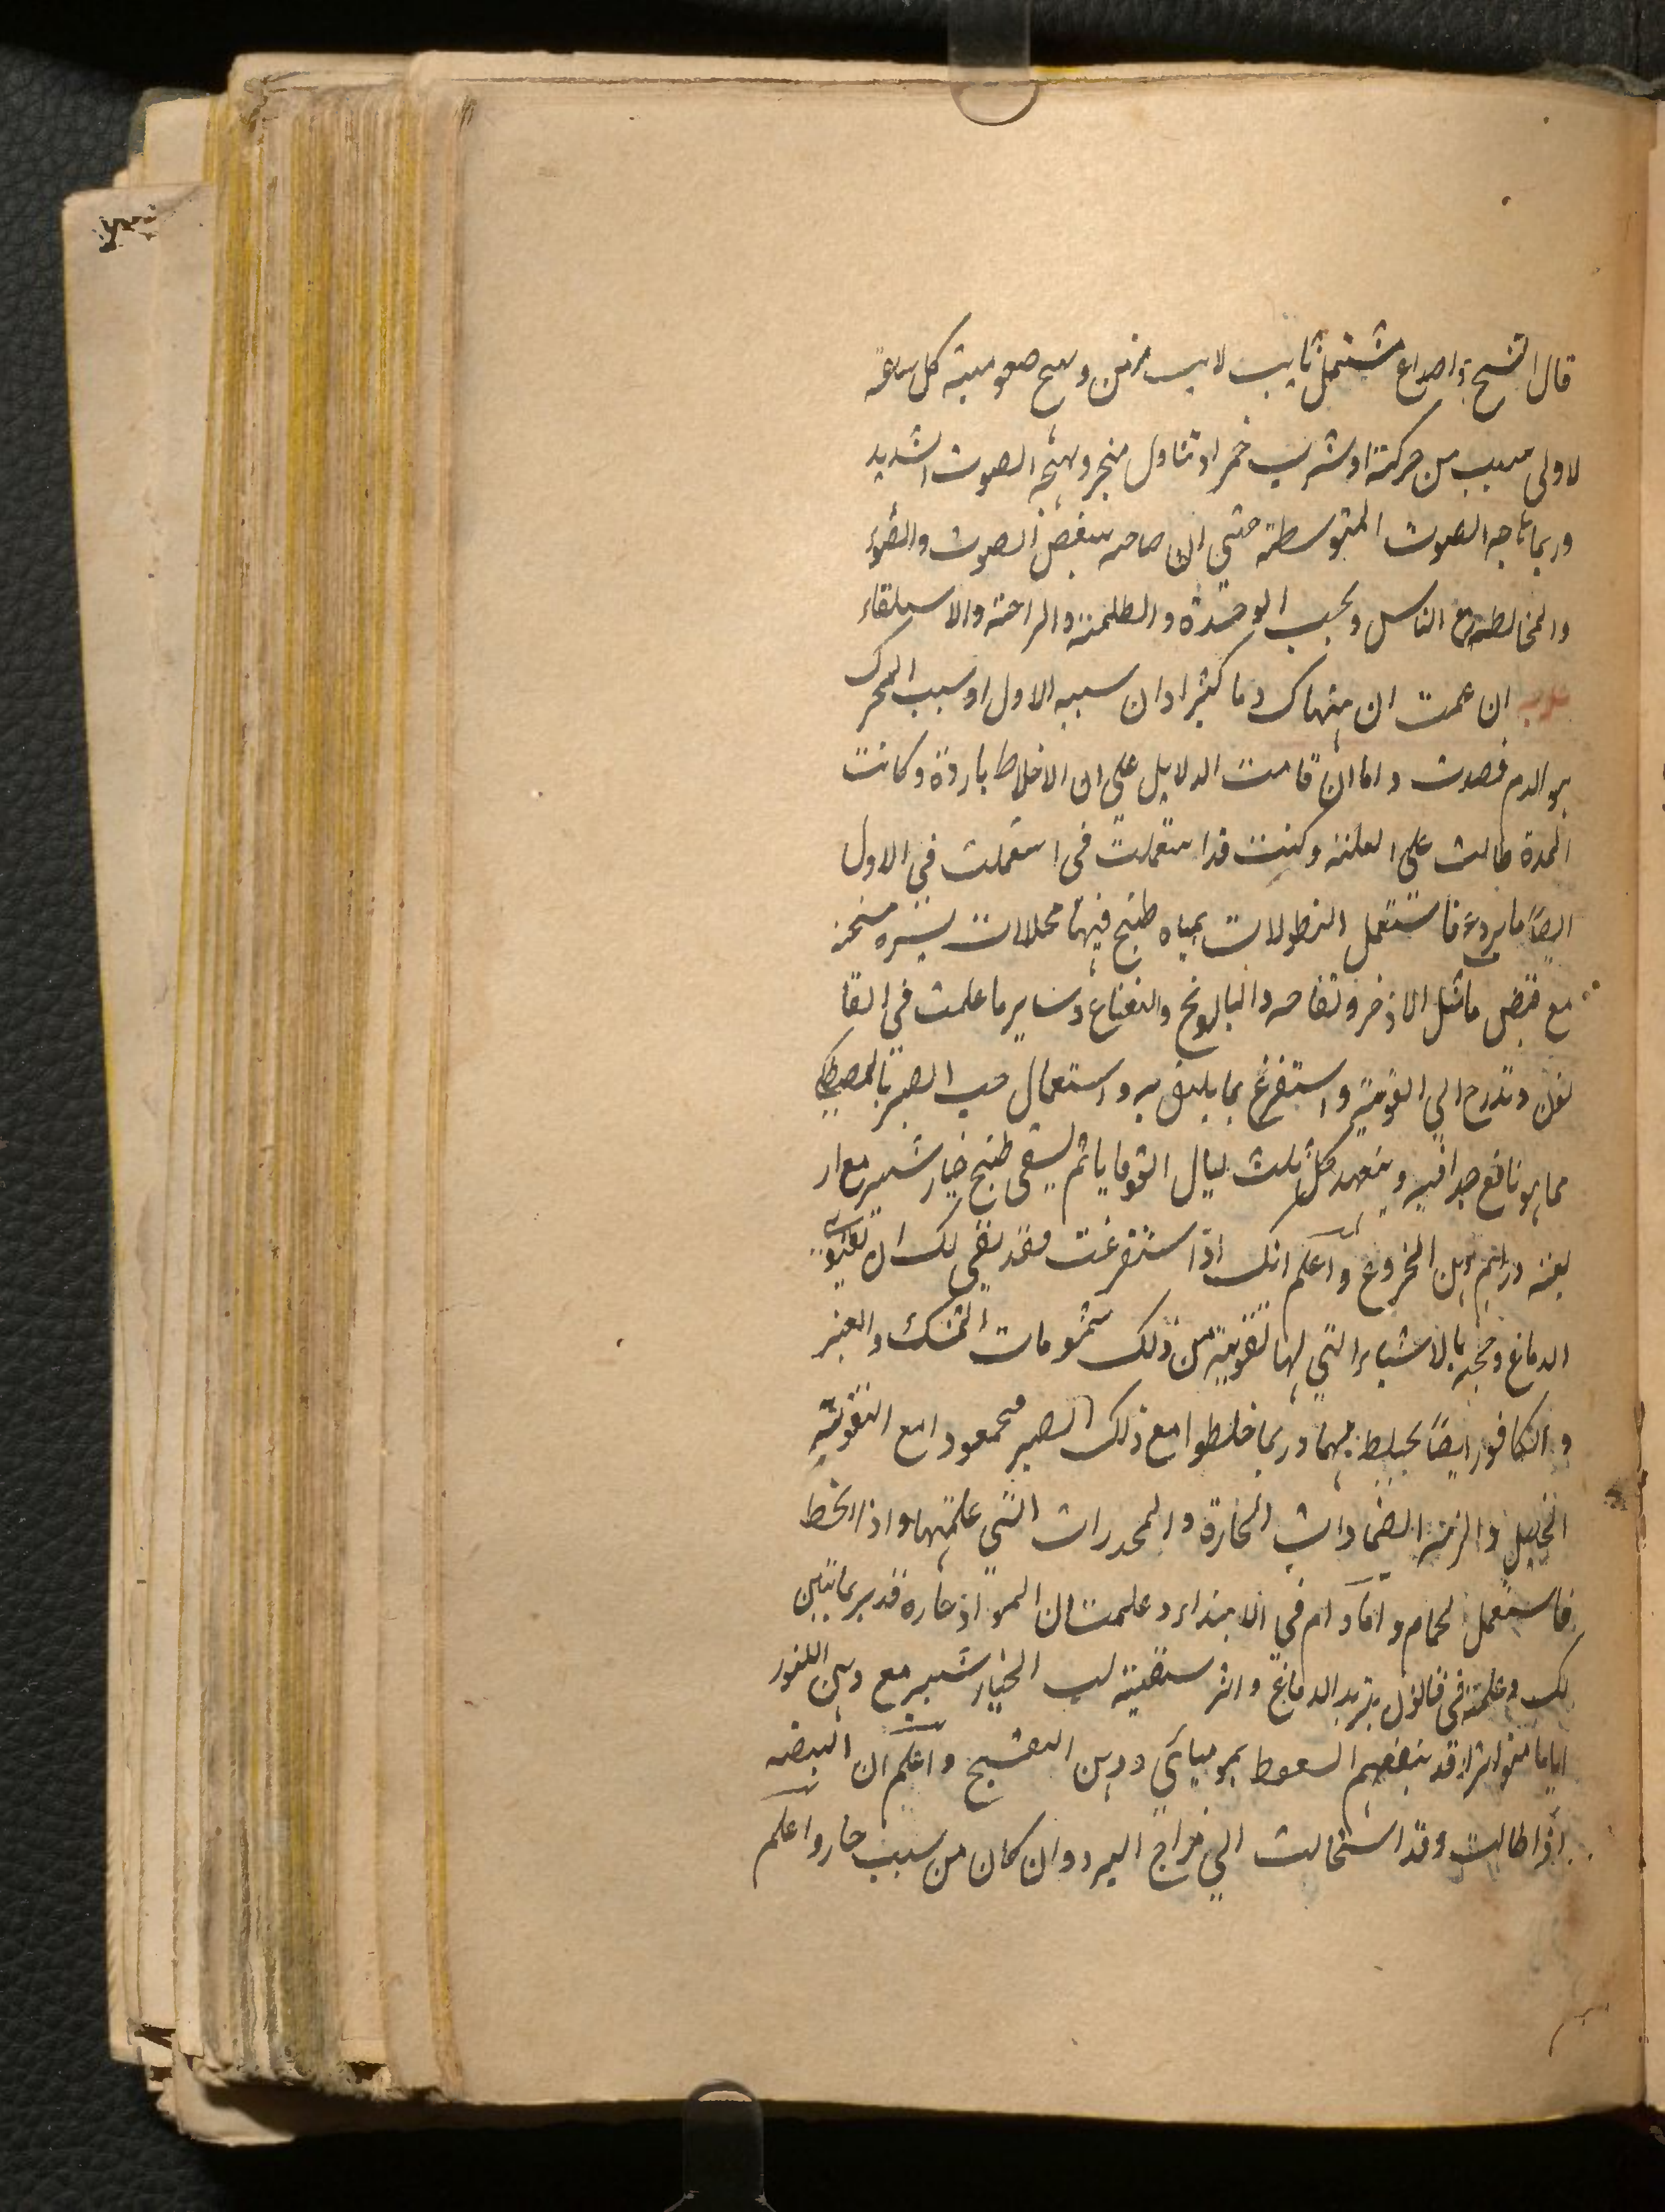 قال الشيخ ذا صداع مشتمل ثابت لابث مزمن ويهيج صعوبته كل ساعة
لاولى سبب من حركة او شرب خمر او تناول مبخر ويهيجه الصوت الشديد
وربما هاجه الصوت المتوسطة حتى ان صاحبه يبغض الصوت والضوء
والمخالطة مع الناس ويحب الوحدة والظلمة والراحة والاستلقاء
ان علمت ان هناك دما كثيرا وان سببه الاول او سبب المحرك
هو الدم فصدت واما ان قامت الدلايل على ان الاخلاط باردة وكانت
المدة طالت على العلة وكنت قد استعملت في استعملت في الاول
ايضا ما يردع فاستعمل النطولات بمياه طبخ فيها محللات يسيره مسخنه
مع قبض ما مثل الاذخر وفقاحه والبابونج والنعناع وساير ما علمت في القا
نون وتدرج الى القوية واستفرغ بما يليق به واستعمال حب الصبر بالمصطكى
مما هو نافع جدا فيه ويتعهد كل ثلث ليال القوقايا ثم يسقى طبخ خيارشنبر مع ار
بعة دراهم دهن الخروع واعلم انك اذا استفرغت فقد بقي لك ان تقوى
الدماغ وحجبه بالاشياء التي لها تقوية من ذلك شمومات المسك والعنبر
والكافور ايضا يخلط بهما وربما خلطوا مع ذلك الصبر محمعودا مع التقوية
التحليل والزمه الضمادات الحارة والمخدرات التي علمتها واذا انحط
فاستعمل الحمام واما دام في الابتداء وعلمت ان المواد حارة فدبر بما تبين
لك وعلمته في قانون تبريد الدماغ واثر سقيه لب الخيارشنبر مع دهن اللوز
اياما متواترا وقد ينفعهم السعوط بموميائي ودهن البنفسج واعلم ان البيضه
اذا طالت وقد استحالت الى مزاج البرد وان كان من سبب حار واعلم